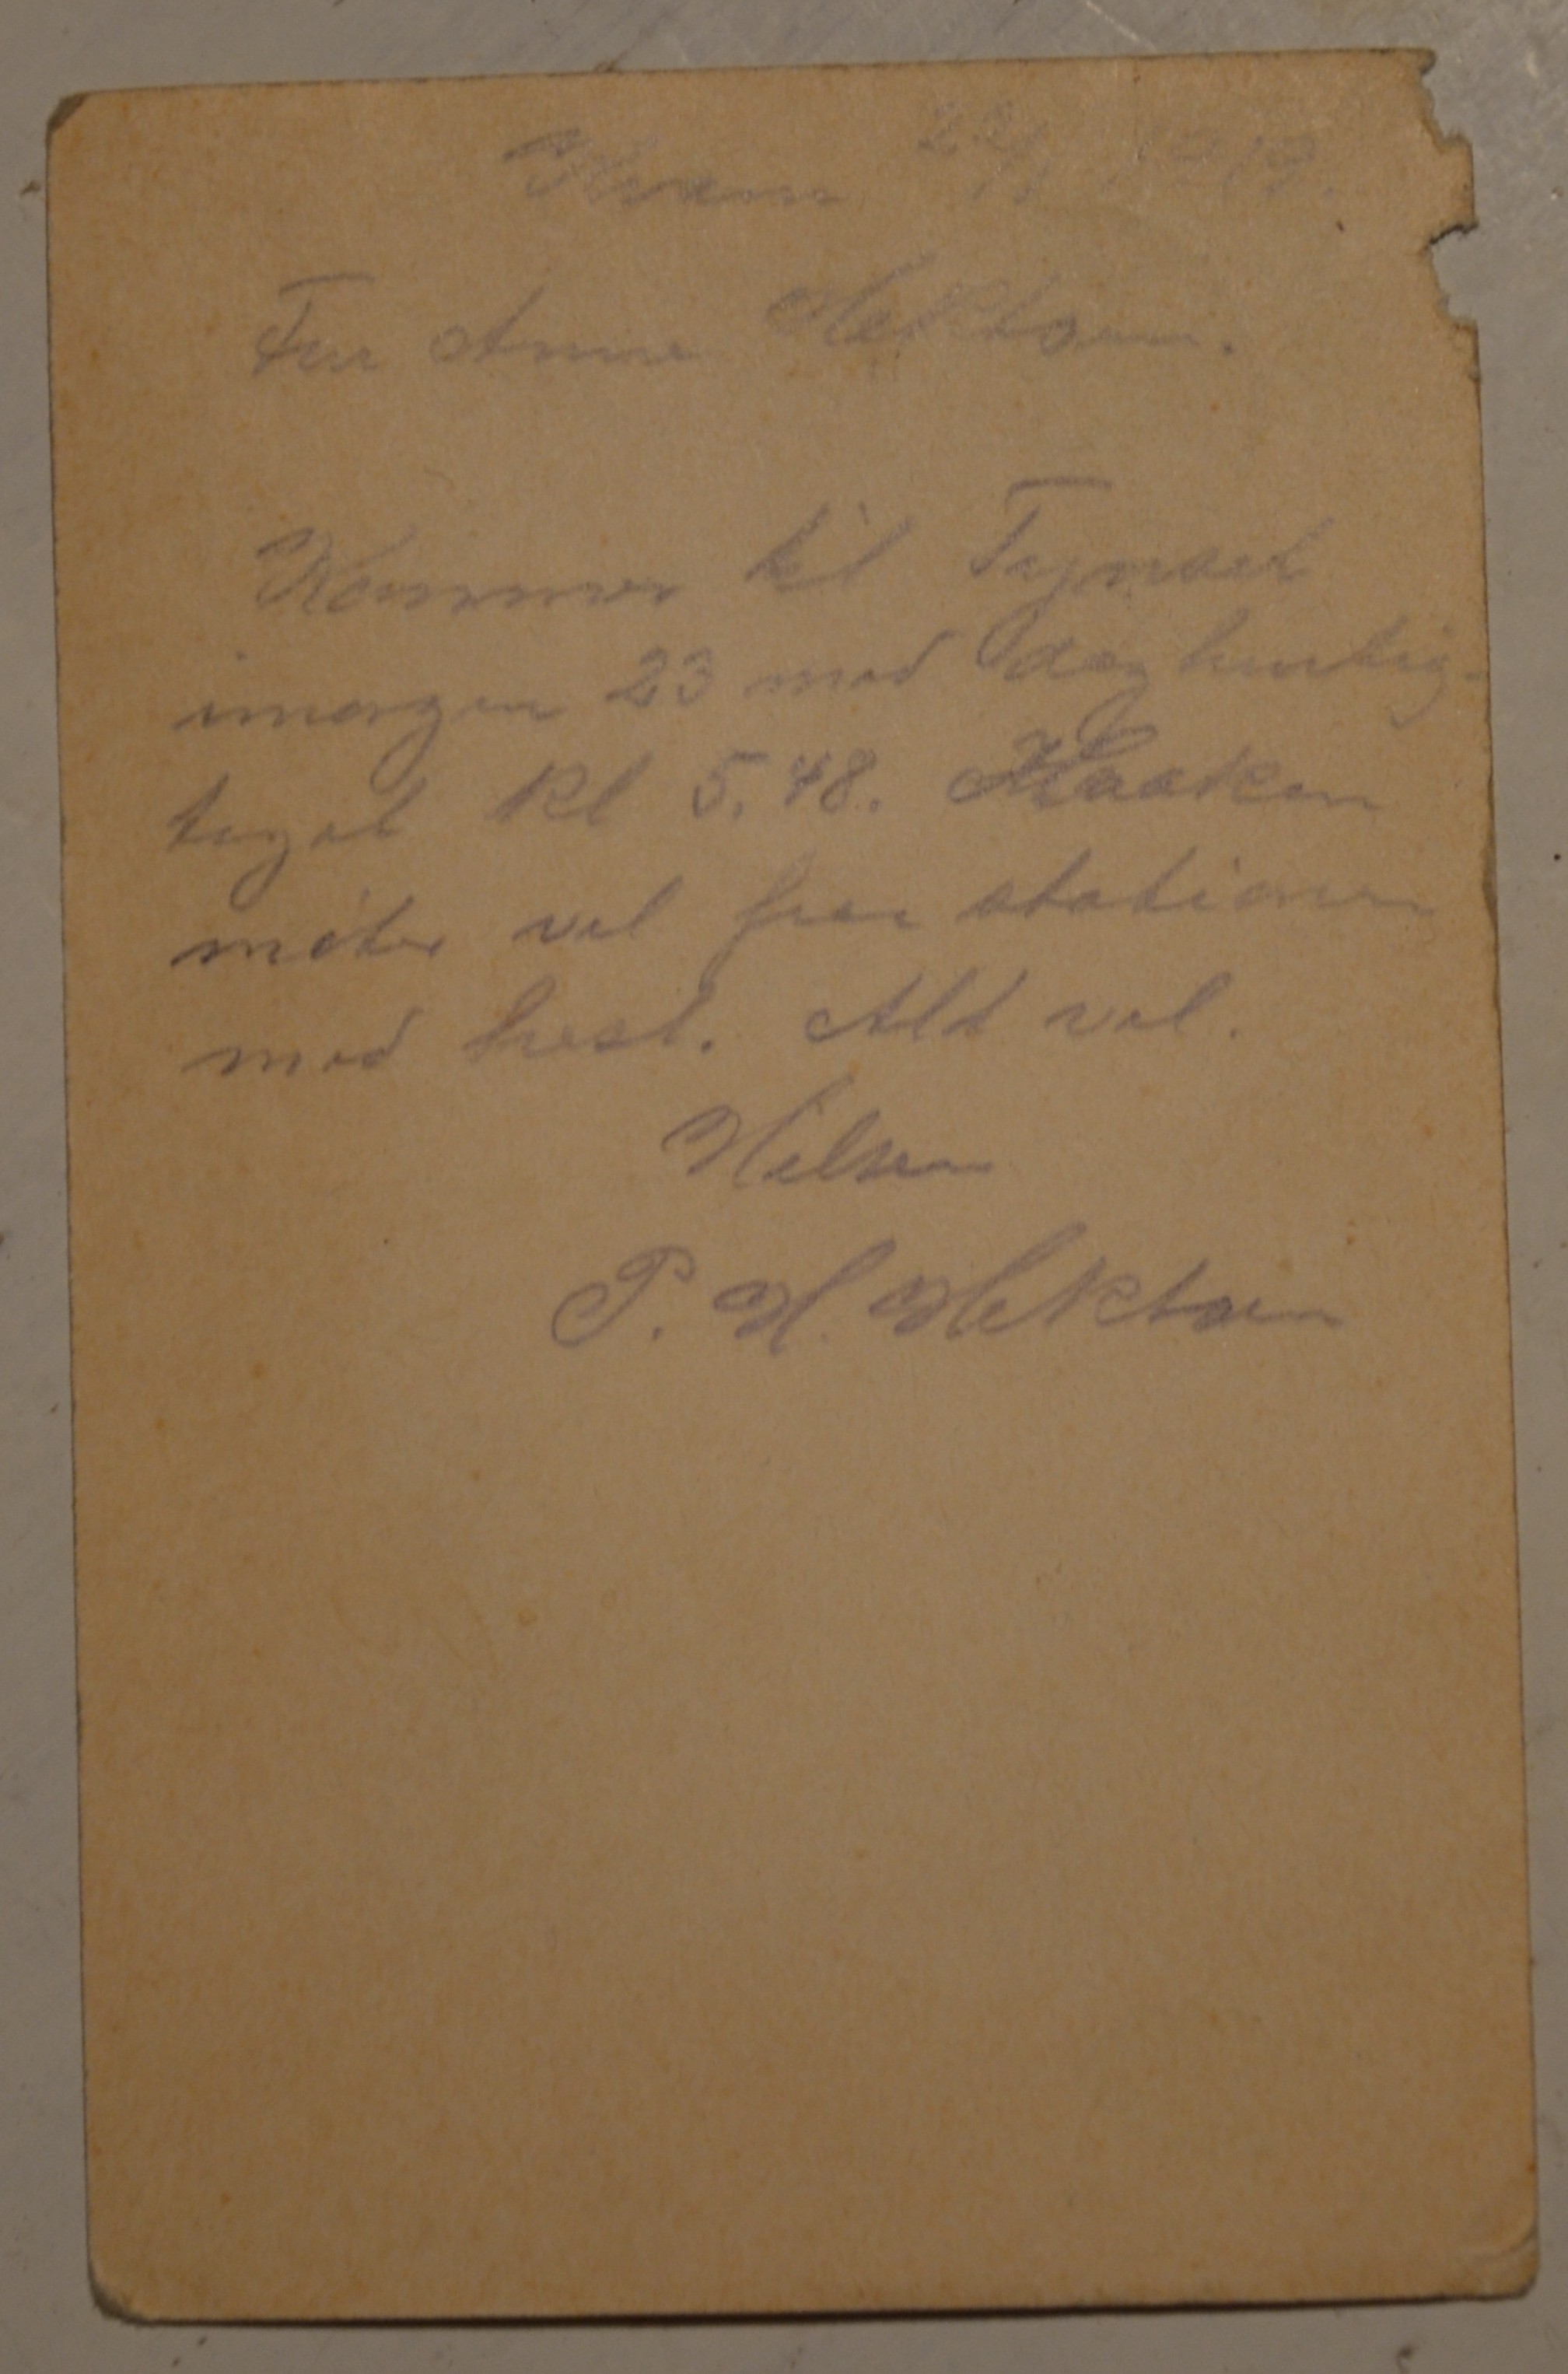 Kvam 22/1 1919.
Fru Anne Hektoen.
Kommer til Tynset
imorgen 23 med daghurtig-
toget kl 5.48. Haaken
møter vel fra stationen
med hest. Alt vel.
Hilsen
P. H. Hektoen